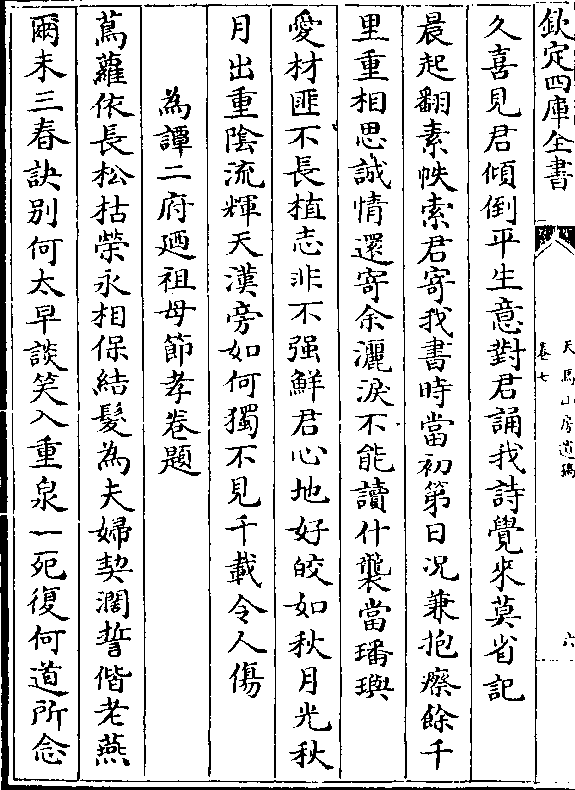 欽定四庫全書
天馬山房遺稿
卷七
六
久喜見君傾倒平生意對君誦我詩覺來莫省記
晨起翻素帙索君寄我書時當初第日况兼抱瘵餘千
里重相思誠情還寄余灑淚不能讀什襲當璠璵
愛材匪不長植志非不强鮮君心地好皎如秋月光秋
月出重陰流輝天漢旁如何獨不見千載令人傷
為譚二府廼祖母節孝卷題
蔦蘿依長松枯榮永相保結髮為夫婦契濶誓偕老燕
爾未三春訣别何太早談笑入重泉一死復何道所念